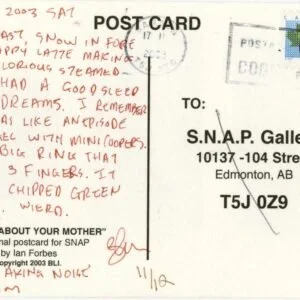 2003 SAT
POST CARD
AST SNOW IN FORE
APPY LATTE MAKING
LORIOUS STEAMED
HAD A GOOD SLEEP
DREAMS. I REMEMBER
AS LIKE AN EPISODE
WITH MINI COOPERS.
BIG RING THAT
3 FINGERS. IT
CHIPPED GREEN
WIERD.
17 11
2003
POSTA
COD
TO:
S.N.A.P. Galle
10137 -104 Stree
Edmonton, AB
T5J 0Z9
ABOUT YOUR MOTHER"
nal postcard for SNAP
by Ian Forbes
opyright 2003 BLI.
AKING NOISE
OM
11/12